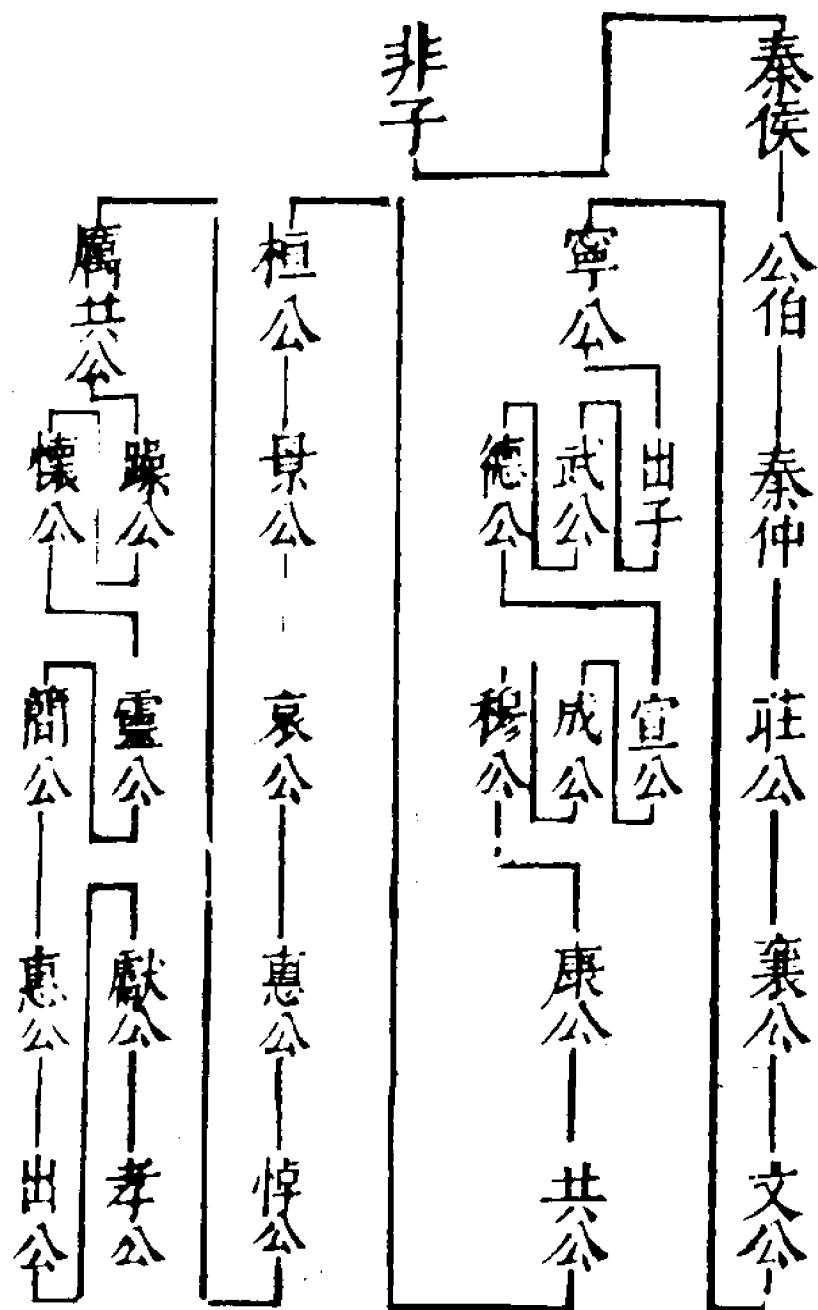 非子
秦侯
公伯
秦仲
莊公
襄公
文公
寧公
出子
武公
德公
宣公
成公
穆公
康公
共公
桓公
景公
哀公
惠公
悼公
厲共公
躁公
懷公
靈公
簡公
惠公
出公
獻公
孝公